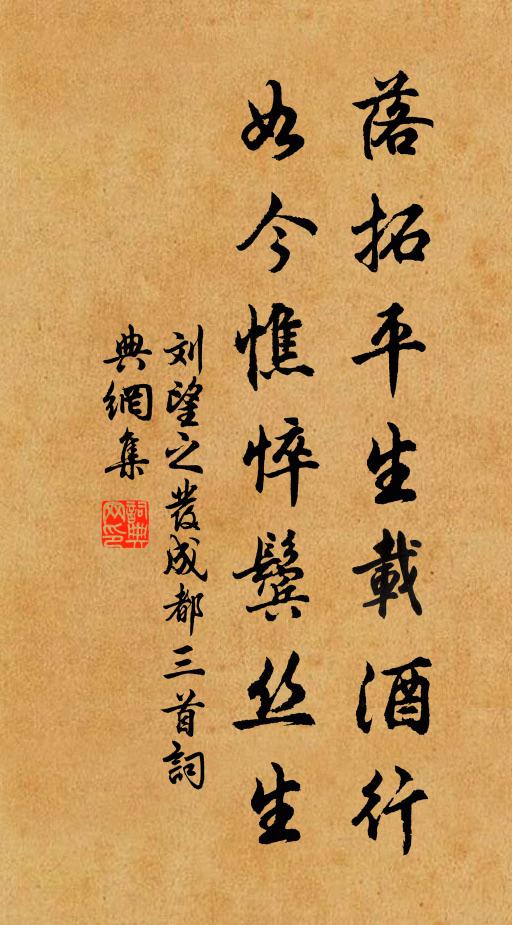 落拓平生載酒行
如今憔悴鬢丝生
刘望之發成都三首詞
典網集
詞典
网印